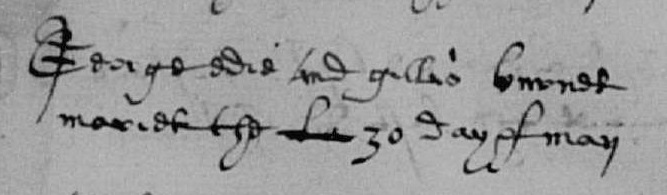 George edie and gilles burnet
mariet the 30 day of may